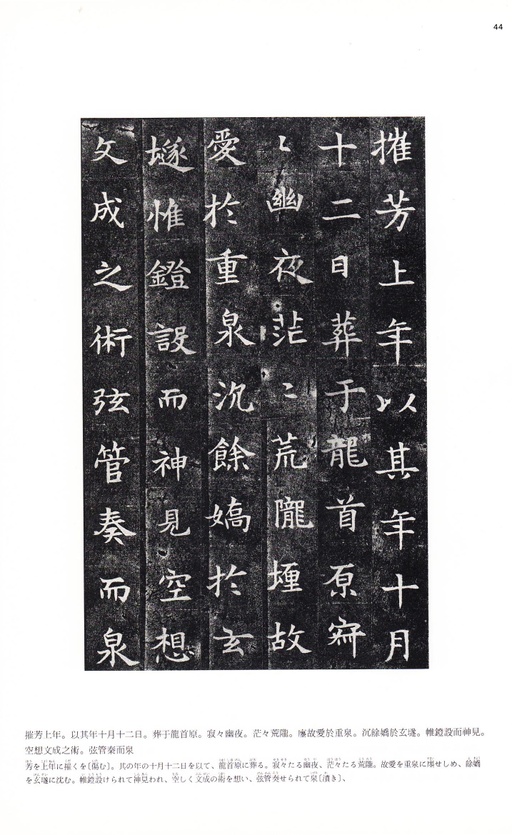 44
摧芳上年以其年十月
十二日葬于龍首原㝥
〻幽夜茫〻荒隴堙故
愛於重泉沉餘嬌於玄
㙇惟鐙設而神見空想
文成之術弦管奏而泉
摧芳上年。以其年十月十二日。葬于龍首原。寂々幽夜。茫々荒隴。堙故愛於重泉。沉餘嬌於玄㙇。帷鐙設而神見。
空想文成之術。弦管奏而泉
芳を上年に摧くを〔傷む〕。其の年の十月十二日を以て、龍首原に葬る。寂々たる幽夜、茫々たる荒隴。故愛を重泉に堙せしめ、餘嬌
を玄㙇に沈む。帷鐙設けられて神見われ、空しく文成の術を想い、弦管奏せられて泉〔濆き〕、